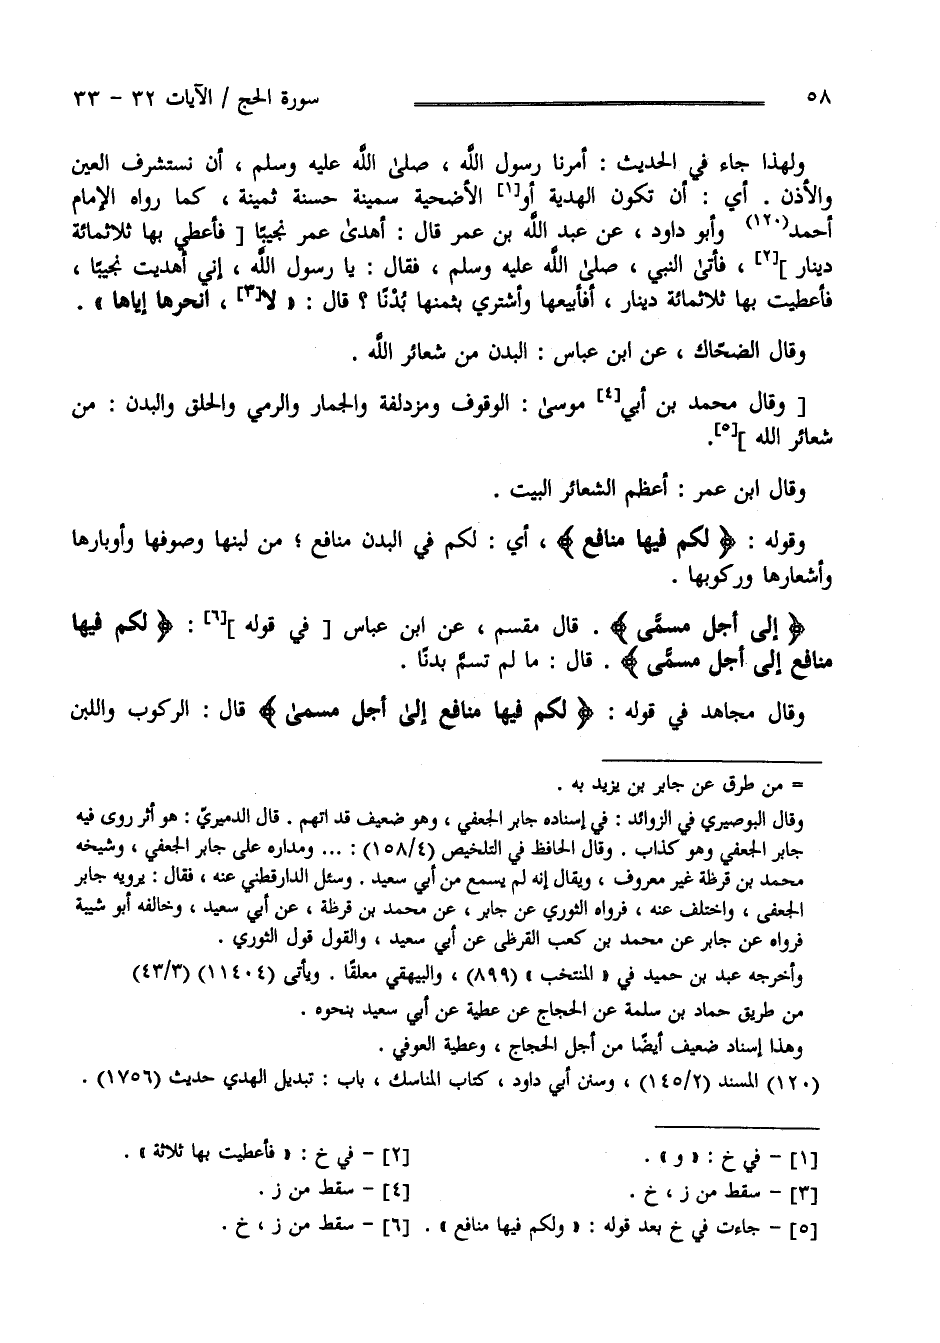 ٥٨ سورة الحج / الآيات ٣٢ - ٣٣
ولهذا جاء في الحديث : أمرنا رسول اللَّه ، صلىٰ اللَّه عليه وسلم ، أن نستشرف العين
والأذن . أي : أن تكون الهدية أو[١] الأضحية سمينة حسنة ثمينة ، كما رواه الإمام
أحمد(١٢٠) وأبو داود ، عن عبد اللَّه بن عمر قال : أهدىٰ عمر نجيبًا [ فأعطي بها ثلاثمائة
دينار ][٢] ، فأتىٰ النبي ، صلىٰ اللَّه عليه وسلم ، فقال : يا رسول اللَّه ، إني أهديت نجيبًا ،
فأعطيت بها ثلاثمائة دينار ، أفأبيعها وأشتري بثمنها بُدْنًا ؟ قال : « لا[٣] ، انحرها إياها » .
وقال الضحّاك ، عن ابن عباس : البدن من شعائر اللَّه .
[ وقال محمد بن أبي[٤] موسىٰ : الوقوف ومزدلفة والجمار والرمي والحلق والبدن : من
شعائر الله ][٥].
وقال ابن عمر : أعظم الشعائر البيت .
وقوله : ﴿ لكم فيها منافع ﴾ ، أي : لكم في البدن منافع ؛ من لبنها وصوفها وأوبارها
وأشعارها وركوبها .
﴿ إلى أجل مسمًّى ﴾ . قال مقسم ، عن ابن عباس [ في قوله ][٦] : ﴿ لكم فيها
منافع إلى أجل مسمًّى ﴾ . قال : ما لم تسمَّ بدنًا .
وقال مجاهد في قوله : ﴿ لكم فيها منافع إلىٰ أجل مسمىٰ ﴾ قال : الركوب واللبن
= من طرق عن جابر بن يزيد به .
وقال البوصيري في الزوائد : في إسناده جابر الجعفي ، وهو ضعيف قد اتهم . قال الدميريّ : هو أثر روى فيه
جابر الجعفي وهو كذاب . وقال الحافظ في التلخيص (١٥٨/٤) : ... ومداره على جابر الجعفي ، وشيخه
محمد بن قرظة غير معروف ، ويقال إنه لم يسمع من أبي سعيد . وسئل الدارقطني عنه ، فقال : يرويه جابر
الجعفى ، واختلف عنه ، فرواه الثوري عن جابر ، عن محمد بن قرظة ، عن أبي سعيد ، وخالفه أبو شيبة
فرواه عن جابر عن محمد بن كعب القرظى عن أبي سعيد ، والقول قول الثوري .
وأخرجه عبد بن حميد في « المنتخب » (٨٩٩) ، والبيهقي معلقًا . ويأتى (١١٤٠٤) (٤٣/٣)
من طريق حماد بن سلمة عن الحجاج عن عطية عن أبي سعيد بنحوه .
وهذا إسناد ضعيف أيضًا من أجل الحجاج ، وعطية العوفي .
(١٢٠) المسند (١٤٥/٢) ، وسنن أبي داود ، كتاب المناسك ، باب : تبديل الهدي حديث (١٧٥٦) .
[١] - في خ : « و » . [٢] - في خ : « فأعطيت بها ثلاثة » .
[٣] - سقط من ز ، خ . [٤] - سقط من ز .
[٥] - جاءت في خ بعد قوله : « ولكم فيها منافع » . [٦] - سقط من ز ، خ .